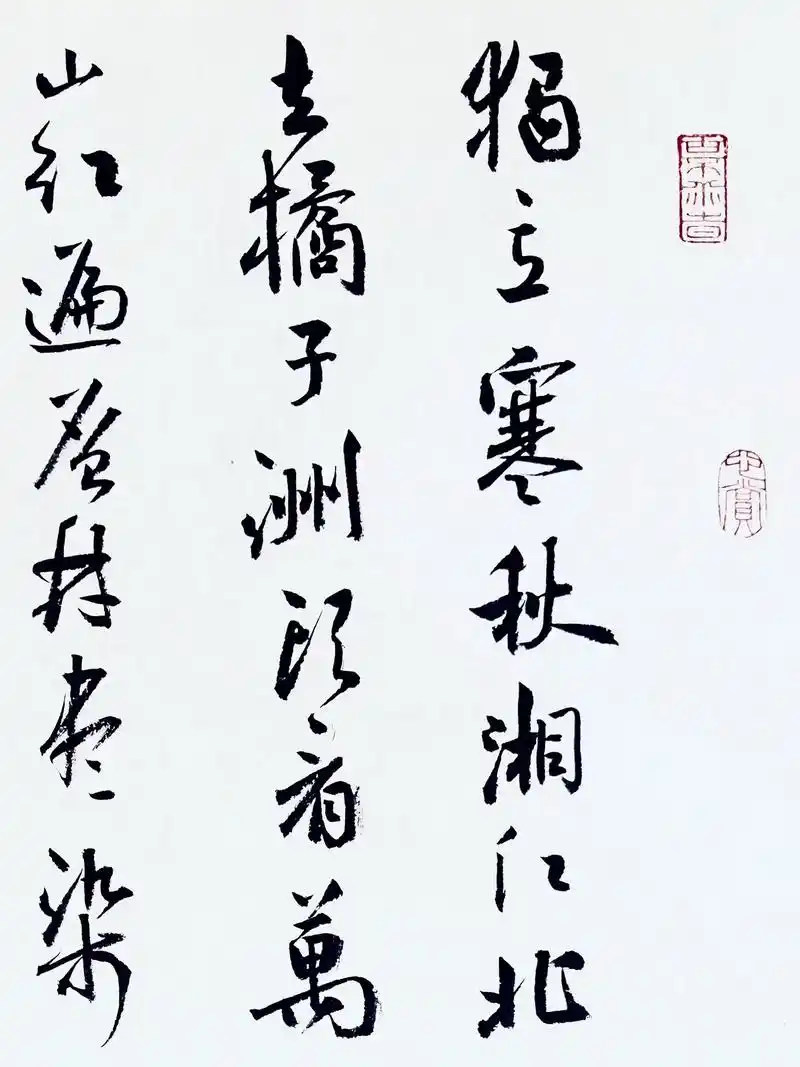 獨立寒秋湘江北
去橘子洲頭看萬
山紅遍層林盡染